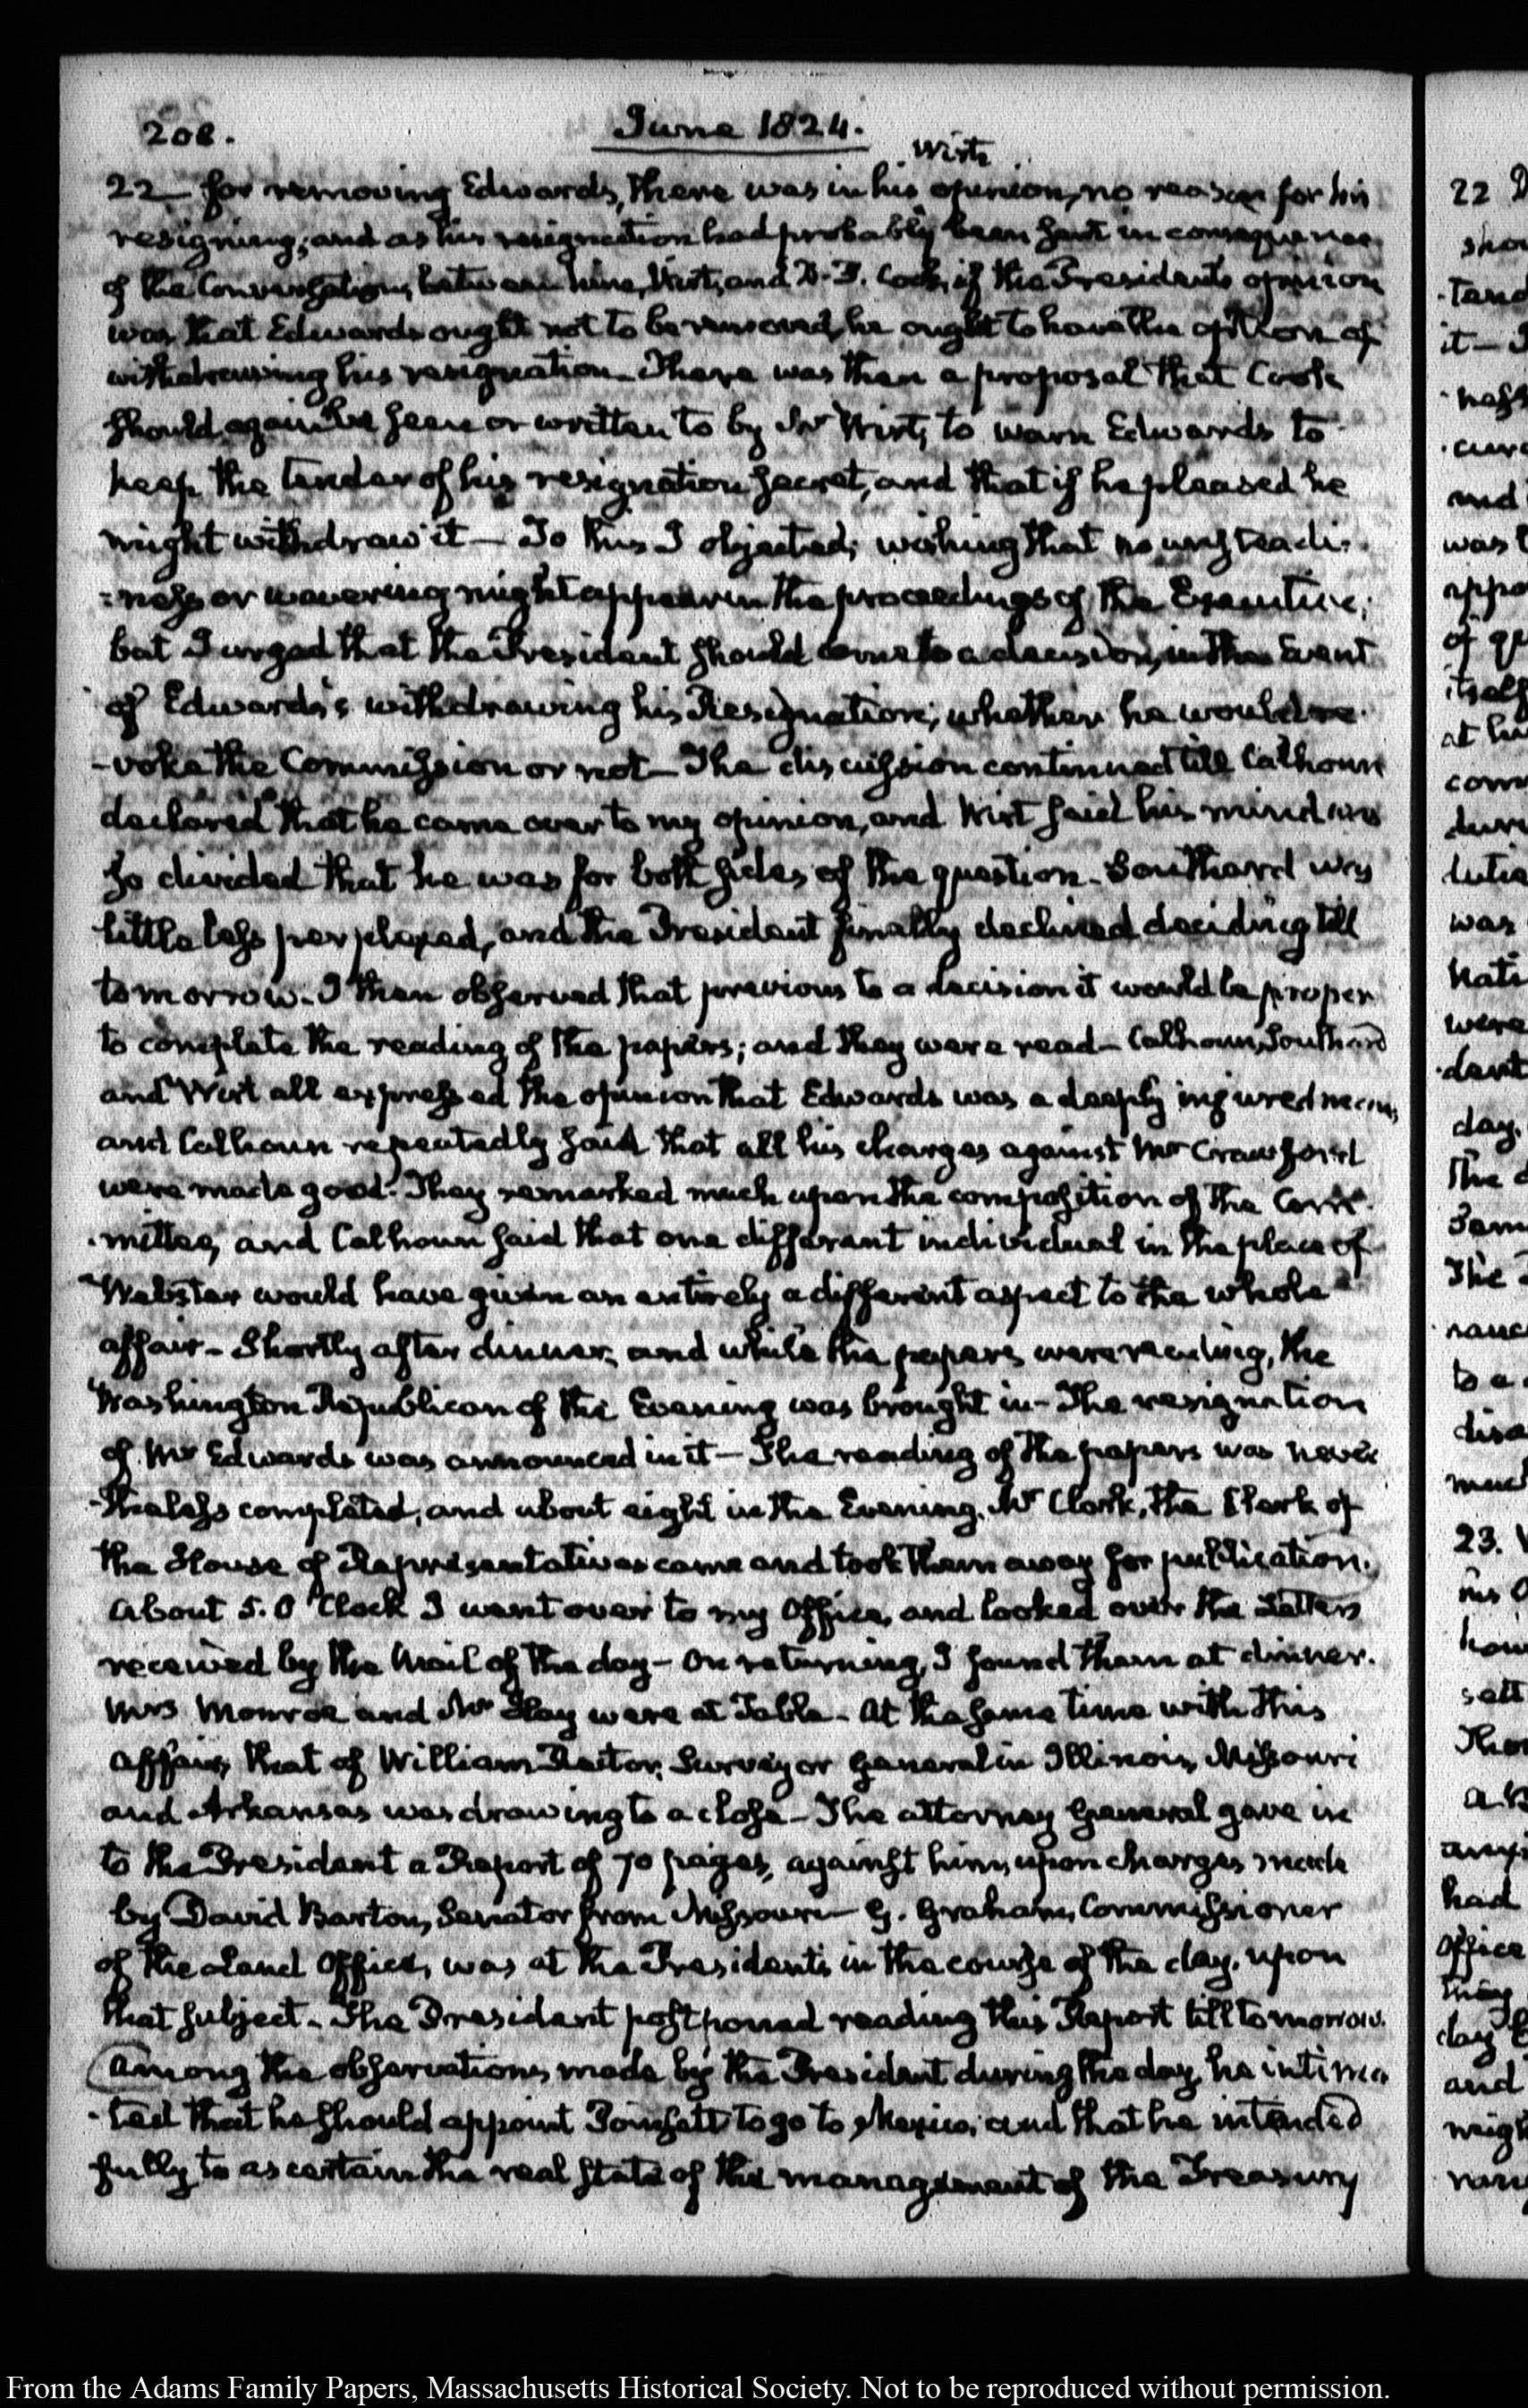 208.
June 1824.
Wirt's
22 for removing Edwards, there was in his opinion, no reason for his
resigning; and as his resignation had probably been sent in consequence
of the Conversations between him, Wirt, and D. P. Cook, if the President's opinion
was that Edwards ought not to be removed, he ought to have the option of
withdrawing his resignation— There was then a proposal that Cook
should again be seen or written to by Mr Wirt, to warn Edwards to
keep the tender of his resignation secret, and that if he pleased he
might withdraw it— To this I objected; wishing that no unsteadi-
=ness or wavering might appear in the proceedings of the Executive;
but I urged that the President should come to a decision, in the Event
of Edwards's withdrawing his Resignation; whether he would re-
-voke the Commission or not— The discussion continued till Calhoun
declared that he came over to my opinion, and Wirt said his mind was
so divided that he was for both sides of the question. Southard was
little less perplexed, and the President finally declined deciding till
tomorrow. I then observed that previous to a decision it would be proper
to complete the reading of the papers; and they were read— Calhoun, Southard
and Wirt all expressed the opinion that Edwards was a deeply injured man,
and Calhoun repeatedly said that all his charges against Mr Crawford
were made good. They remarked much upon the composition of the Com-
-mittee, and Calhoun said that one different individual in the place of
Webster would have given an entirely a different aspect to the whole
affair— Shortly after dinner, and while the papers were reading, the
Washington Republican of the Evening was brought in— The resignation
of Mr Edwards was announced in it— The reading of the papers was never
-theless completed, and about eight in the Evening, Mr Clark, the Clerk of
the House of Representatives came and took them away for publication.
About 5. O'Clock I went over to my Office, and looked over the Letters
received by the Mail of the day— On returning, I found them at dinner.
Mrs Monroe and Mr Hay were at Table— At the same time with this
affair, that of William Rector, Surveyor General in Illinois, Missouri
and Arkansas was drawing to a close— The attorney General gave in
to the President a Report of 70 pages, against him, upon charges made
by David Barton, Senator from Missouri— G. Graham, Commissioner
of the Land Office, was at the President's in the course of the day, upon
that subject. The President postponed reading this Report till tomorrow.
Among the observations made by the President during the day, he intima
-ted that he should appoint Poinsett to go to Mexico; and that he intended
fully to ascertain the real state of the management of the Treasury
22
it—
and
was
of
itself
at his
com
was
were
day.
The
The
to a
much
23.
his
had
Office
they
day
and
From the Adams Family Papers, Massachusetts Historical Society. Not to be reproduced without permission.